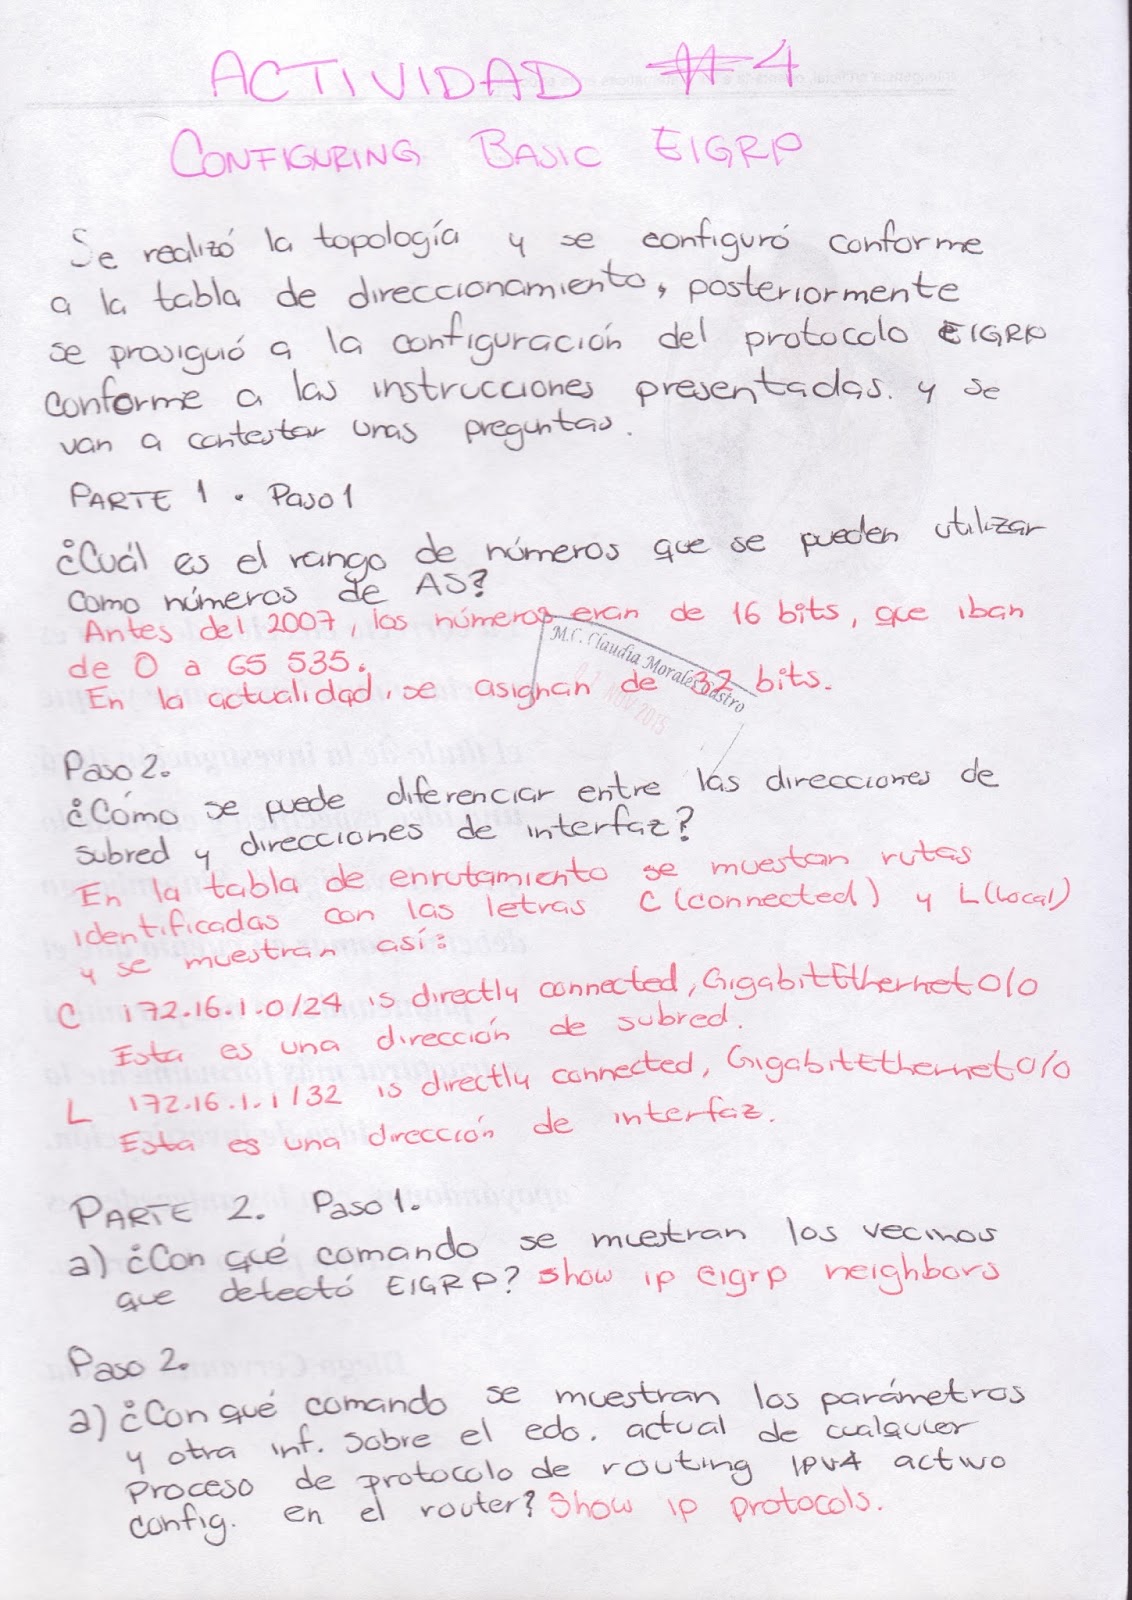 ACTIVIDAD #4
CONFIGURING BASIC EIGRP
Se realizó la topología y se configuró conforme
a la tabla de direccionamiento, posteriormente
se prosiguió a la configuración del protocolo EIGRP
conforme a las instrucciones presentadas. y se
van a contestar unas preguntas.
PARTE 1. Paso 1
¿Cuál es el rango de números que se pueden utilizar
como números de AS?
Antes del 2007, los números eran de 16 bits, que iban
de 0 a 65 535.
En la actualidad, se asignan de 32 bits.
M.C. Claudia Morales Castro
NOV 2015
Paso 2.
¿Cómo se puede diferenciar entre las direcciones de
subred y direcciones de interfaz?
En la tabla de enrutamiento se muestan rutas
identificadas con las letras C (connected) y L (Local)
y se muestran así:
C 172.16.1.0/24 is directly connected, GigabitEthernet0/0
Esta es una dirección de subred.
L 172.16.1.1/32 is directly connected, GigabitEthernet0/0
Esta es una dirección de interfaz.
PARTE 2. Paso 1.
a) ¿Con qué comando se muestran los vecinos
que detectó EIGRP? show ip eigrp neighbors
Paso 2.
a) ¿Con qué comando se muestran los parámetros
y otra inf. sobre el edo. actual de cualquier
proceso de protocolo de routing IPv4 activo
config. en el router? Show ip protocols.